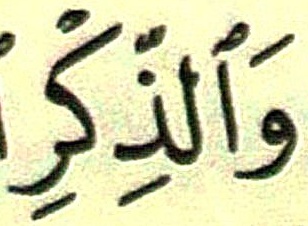 وَٱلذِّكْرِ